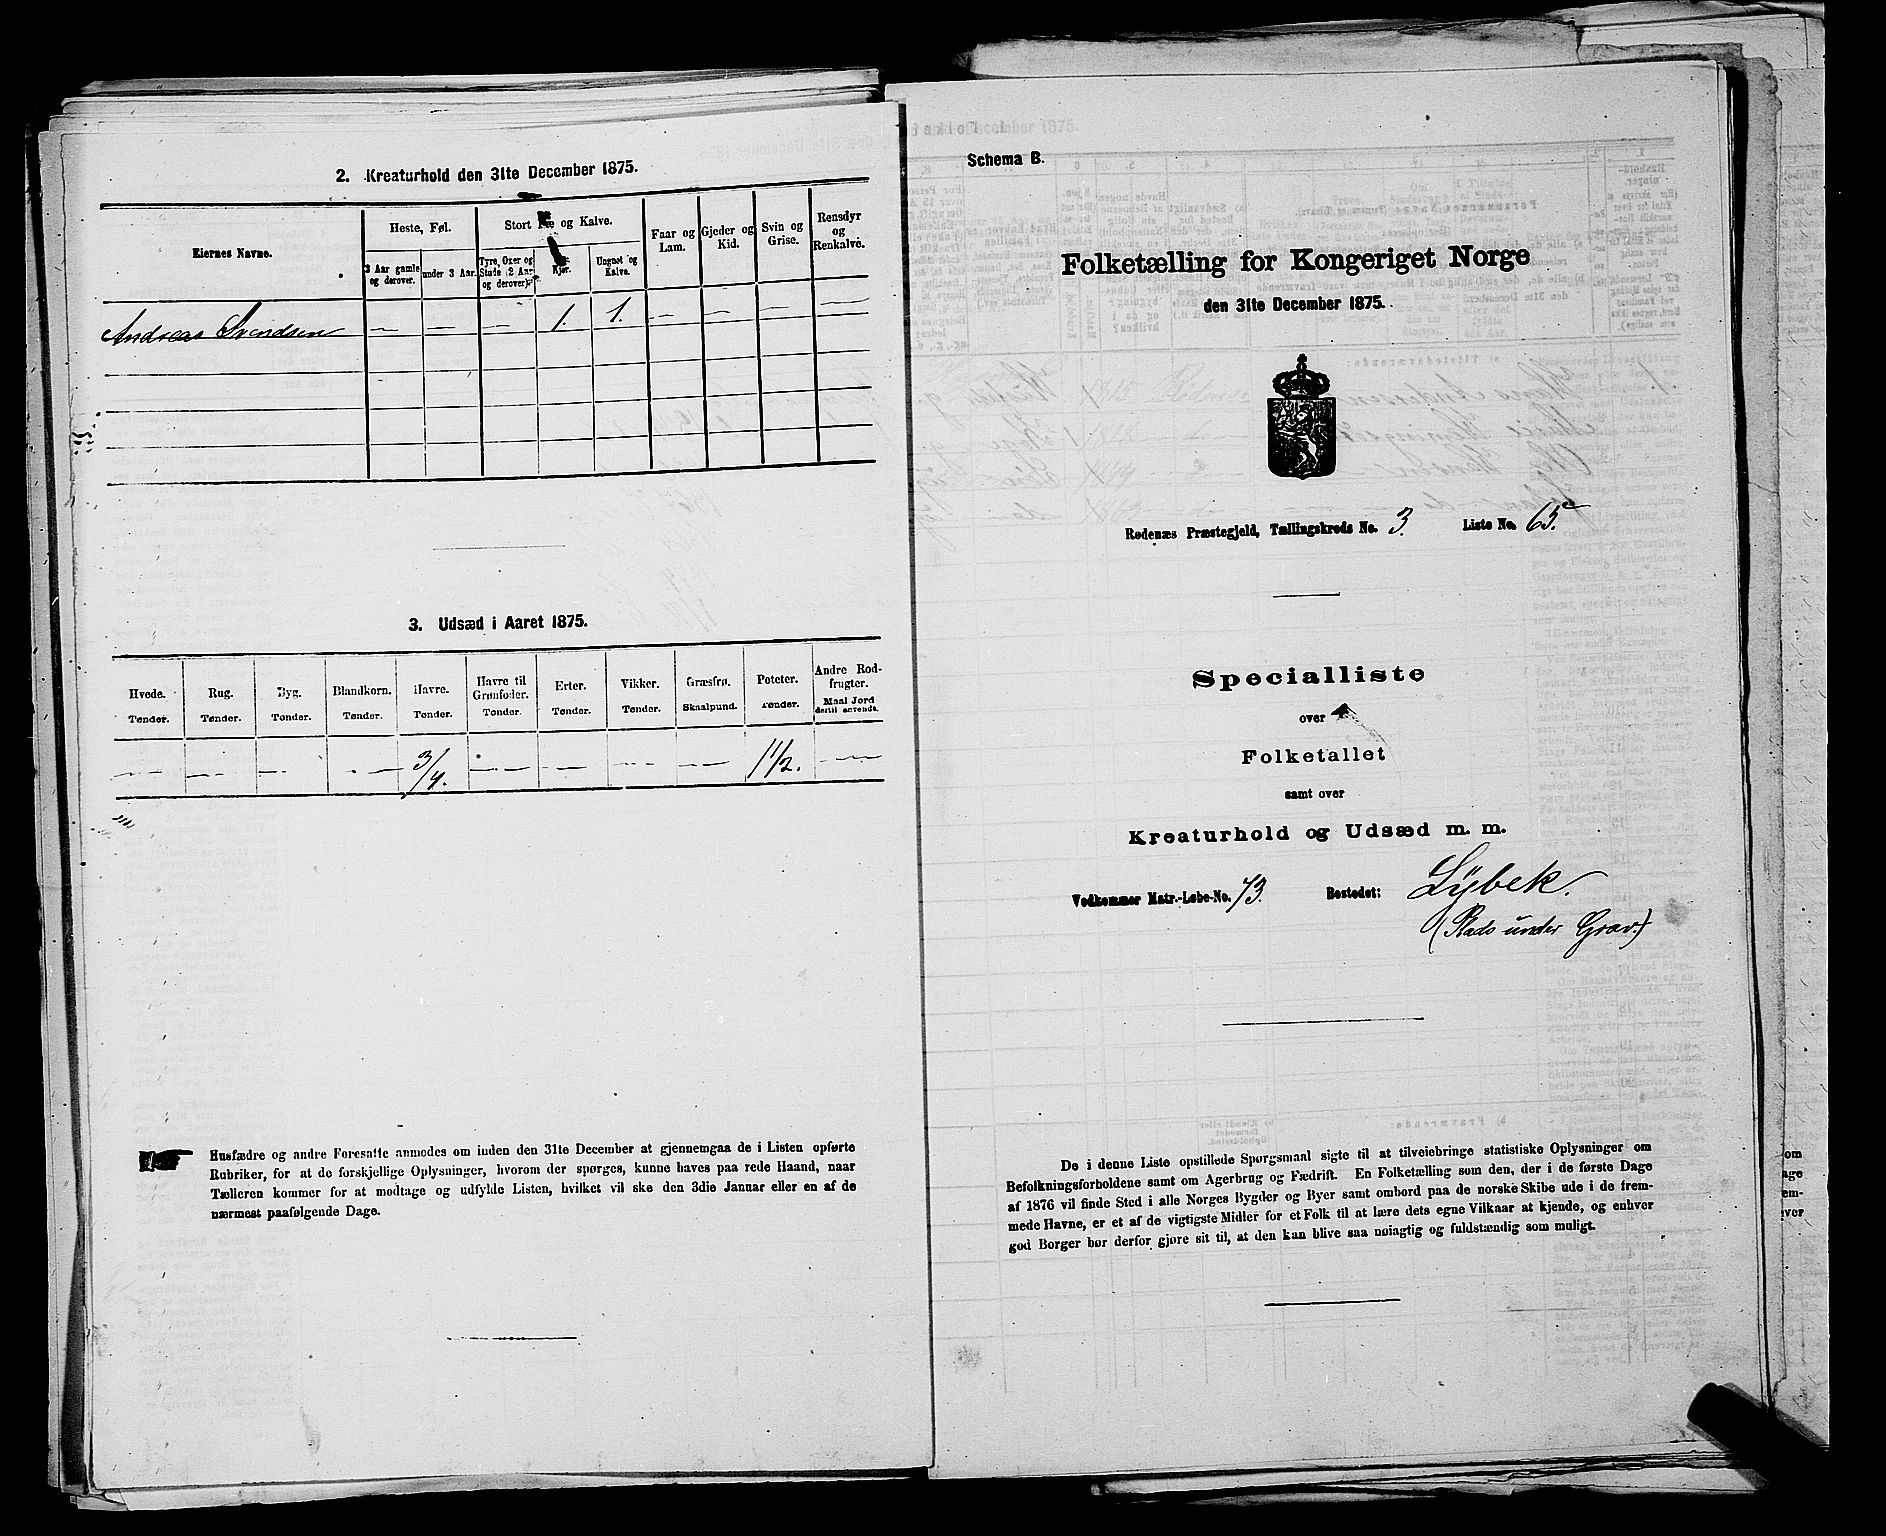 2. Kreaturhold den 31te December 1875.
Eiernes Navne.
Heste, Føl.
Stort og Kalve.
Faar og Lam.
Gjeder og Kid.
Svin og Grise.
Rensdyr og Renkalve.
3 Aar gamle og derover.
under 3 Aar.
Tyre, Oxer og Stude (2 Aar og derover).
Kjør.
Ungnøt og Kalve.
Andreas Svendsen — — — 1. 1. — — — —
3. Udsæd i Aaret 1875.
Hvede. Rug. Byg. Blandkorn. Havre. Havre til Grønfoder. Erter. Vikker. Græsfrø. Poteter. Andre Rodfrugter.
Tønder. Tønder. Tønder. Tønder. Tønder. Tønder. Tønder. Tønder. Skaalpund. Tønder. Maal Jord dertil anvendt.
— — — — 3/4. — — — — 1 1/2. —
Husfædre og andre Foresatte anmodes om inden den 31te December at gjennemgaa de i Listen opførte
Rubriker, for at de forskjellige Oplysninger, hvorom der spørges, kunne haves paa rede Haand, naar
Tælleren kommer for at modtage og udfylde Listen, hvilket vil ske den 3die Januar eller en af de
nærmest paafølgende Dage.
Schema B.
Folketælling for Kongeriget Norge
den 31te December 1875.
Rødenæs Præstegjeld, Tællingskreds No. 3. Liste No. 65c
Specialliste
over
Folketallet
samt over
Kreaturhold og Udsæd m. m.
Vedkommer Matr.-Løbe-No. 73. Bostedet: Lÿbek.
(Plads under Grav.)
De i denne Liste opstillede Spørgsmaal sigte til at tilveiebringe statistiske Oplysninger om
Befolkningsforholdene samt om Agerbrug og Fædrift. En Folketælling som den, der i de første Dage
af 1876 vil finde Sted i alle Norges Bygder og Byer samt ombord paa de norske Skibe ude i de frem-
mede Havne, er et af de vigtigste Midler for et Folk til at lære dets egne Vilkaar at kjende, og enhver
god Borger bør derfor gjøre sit til, at den kan blive saa nøiagtig og fuldstændig som muligt.